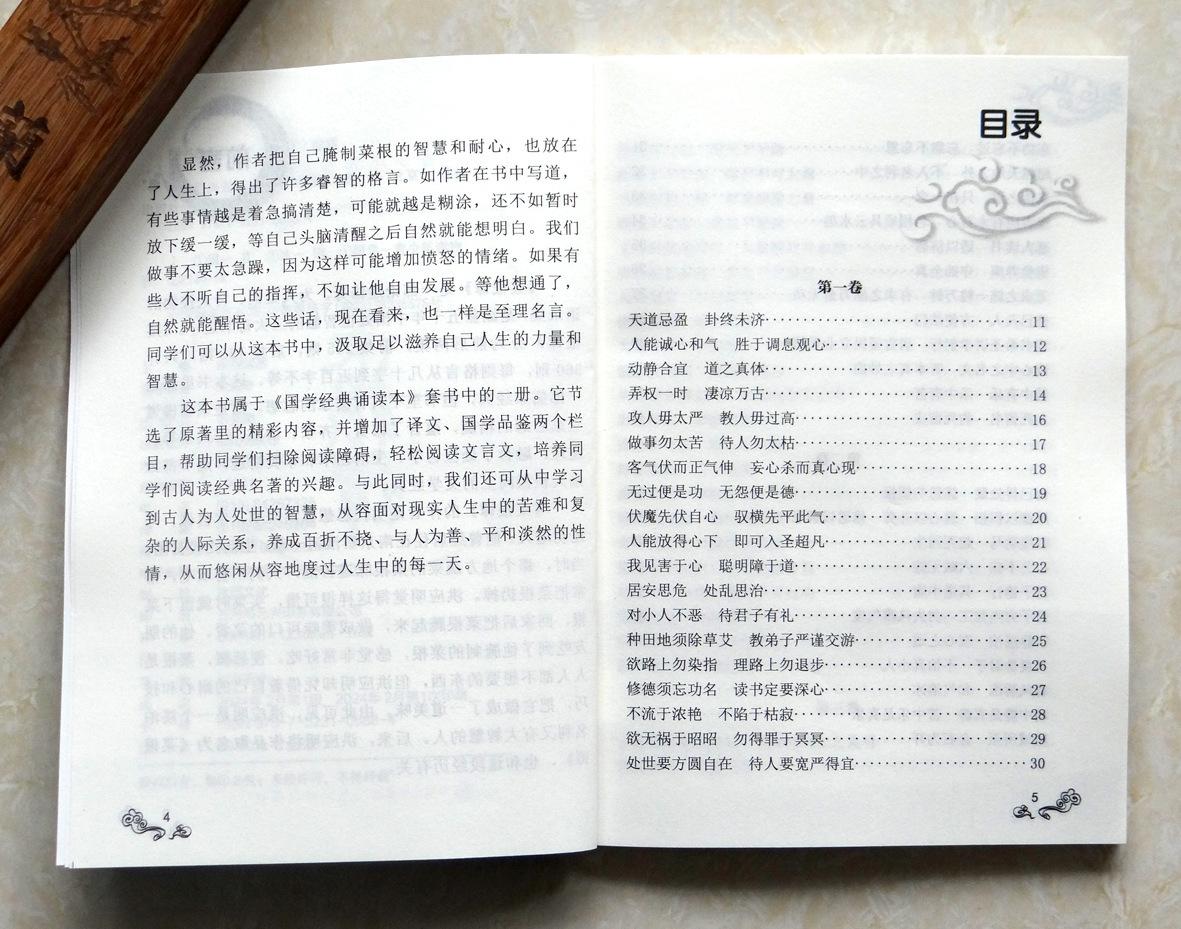 显然，作者把自己腌制菜根的智慧和耐心，也放在
了人生上，得出了许多睿智的格言。如作者在书中写道，
有些事情越是着急搞清楚，可能就越是糊涂，还不如暂时
放下缓一缓，等自己头脑清醒之后自然就能想明白。我们
做事不要太急躁，因为这样可能增加愤怒的情绪。如果有
些人不听自己的指挥，不如让他自由发展。等他想通了，
自然就能醒悟。这些话，现在看来，也一样是至理名言。
同学们可以从这本书中，汲取足以滋养自己人生的力量和
智慧。
这本书属于《国学经典诵读本》套书中的一册。它节
选了原著里的精彩内容，并增加了译文、国学品鉴两个栏
目，帮助同学们扫除阅读障碍，轻松阅读文言文，培养同
学们阅读经典名著的兴趣。与此同时，我们还可从中学习
到古人为人处世的智慧，从容面对现实人生中的苦难和复
杂的人际关系，养成百折不挠、与人为善、平和淡然的性
情，从而悠闲从容地度过人生中的每一天。
4
目录
第一卷
天道忌盈　卦终未济 11
人能诚心和气　胜于调息观心 12
动静合宜　道之真体 13
弄权一时　凄凉万古 14
攻人毋太严　教人毋过高 16
做事勿太苦　待人勿太枯 17
客气伏而正气伸　妄心杀而真心现 18
无过便是功　无怨便是德 19
伏魔先伏自心　驭横先平此气 20
人能放得心下　即可入圣超凡 21
我见害于心　聪明障于道 22
居安思危　处乱思治 23
对小人不恶　待君子有礼 24
种田地须除草艾　教弟子严谨交游 25
欲路上勿染指　理路上勿退步 26
修德须忘功名　读书定要深心 27
不流于浓艳　不陷于枯寂 28
欲无祸于昭昭　勿得罪于冥冥 29
处世要方圆自在　待人要宽严得宜 30
5